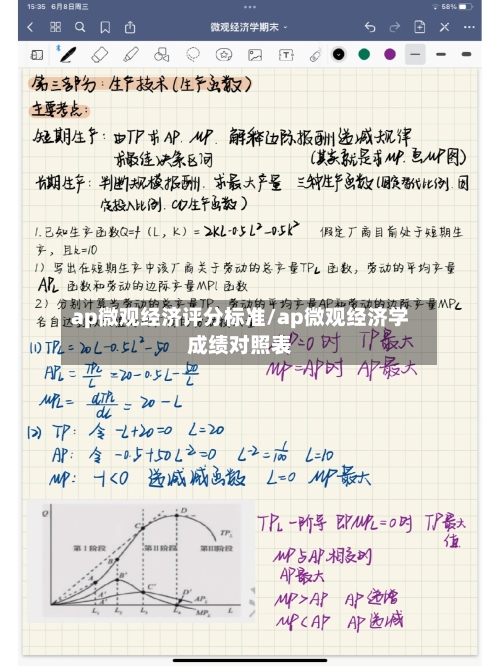 15:35 6月8日周三
58%
微观经济学期末
第三部分:生产技术(生产函数)
主要考点:
短期生产:由TP求AP、MP. 解释边际报酬递减规律
求最佳决策区间 (其实就是求MP、画MP图)
长期生产:判断规模报酬、求最大产量 三种生产函数(固定替代比例、固
定投入比例、CD生产函数)
1.已知生产函数Q=f(L,K)=2KL-0.5L²-0.5K² 假定厂商目前处于短期生
产,且k=10
1)写出在短期生产中该厂商关于劳动的总产量TPL函数,劳动的平均产量
APL函数和劳动的边际产量MPL函数
2)分别计算当劳动的总产量TP、劳动的平均产量AP和劳动的边际产量MPL
名自达
ap微观经济评分标准/ap微观经济学
成绩对照表
(1) TPL=20L-0.5L²-50
=0时 TP最大
APL=TPL/L=20-0.5L-50/L
MP=AP时 AP最大
MPL=dTPL/dL=20-L
(2) TP:令-L+20=0 L=20
AP:令-0.5+50L⁻²=0 L⁻²=1/100 L=10
MP:-1<0 递减函数 L=0 MP最大
Q
D
C
TPL
第I阶段 第II阶段 第III阶段
B
A B' C' D'
A'
APL
MPL
O L₁ L₂ L₃ L₄ L
TPL一阶导 即MPL=0时 TP最大
值
MP与AP相交时
AP最大
MP>AP AP递增
MP<AP AP递减